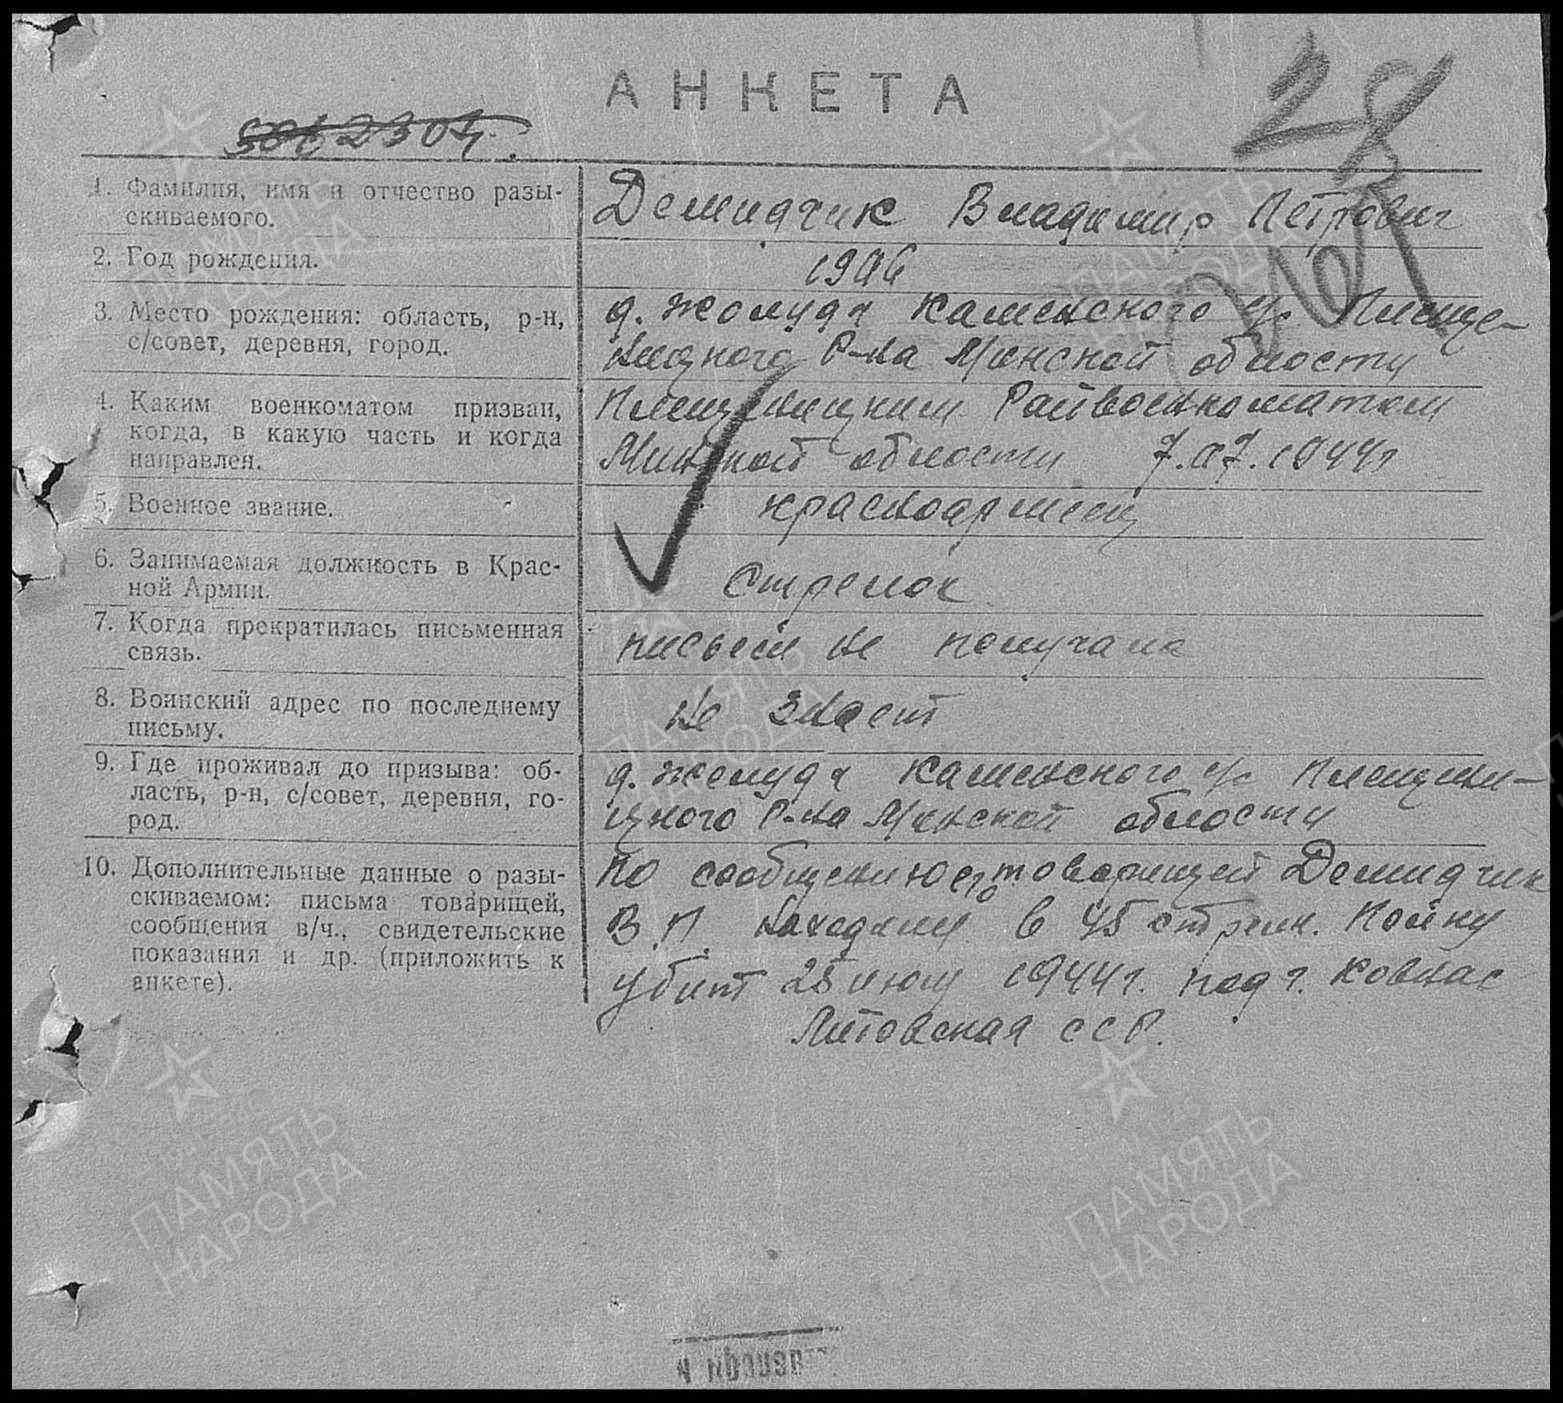 АНКЕТА
28
1. Фамилия, имя и отчество разы-
скиваемого.
Демидчик Владимир Петрович
2. Год рождения.
19
3. Место рождения: область, р-н,
с/совет, деревня, город.
д. Жолуды Каменского с/с Плеще-
ницкого Р-на Минской области
4. Каким военкоматом призван,
когда, в какую часть и когда
направлен.
Плещеницким Райвоенкоматом
Минской области 7.07.1944г
5. Военное звание.
красноармеец
6. Занимаемая должность в Крас-
ной Армии.
Стрелок
7. Когда прекратилась письменная
связь.
писем не получала
8. Воинский адрес по последнему
письму.
не знает
9. Где проживал до призыва: об-
ласть, р-н, с/совет, деревня, го-
род.
д. Жолуды Каменского с/с Плещени-
цкого Р-на Минской области
10. Дополнительные данные о разы-
скиваемом: письма товарищей,
сообщения в/ч., свидетельские
показания и др. (приложить к
анкете).
По сообщению его товарищей Демидчик
В.П. в 45 стрелк. Полку
убит 1944г. под г. Ковнас
Литовская ССР.
ПАМЯТЬ
НАРОДА
ПАМЯТЬ
НАРОДА
ПАМЯТЬ
НАРОДА
ПАМЯТЬ
НАРОДА
ПАМЯТЬ
НАРОДА